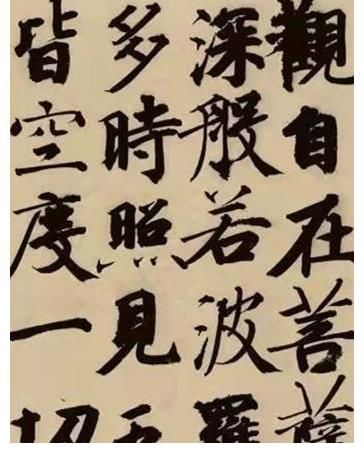 觀自在菩薩
深般若波羅
多時照見五
皆空度一切